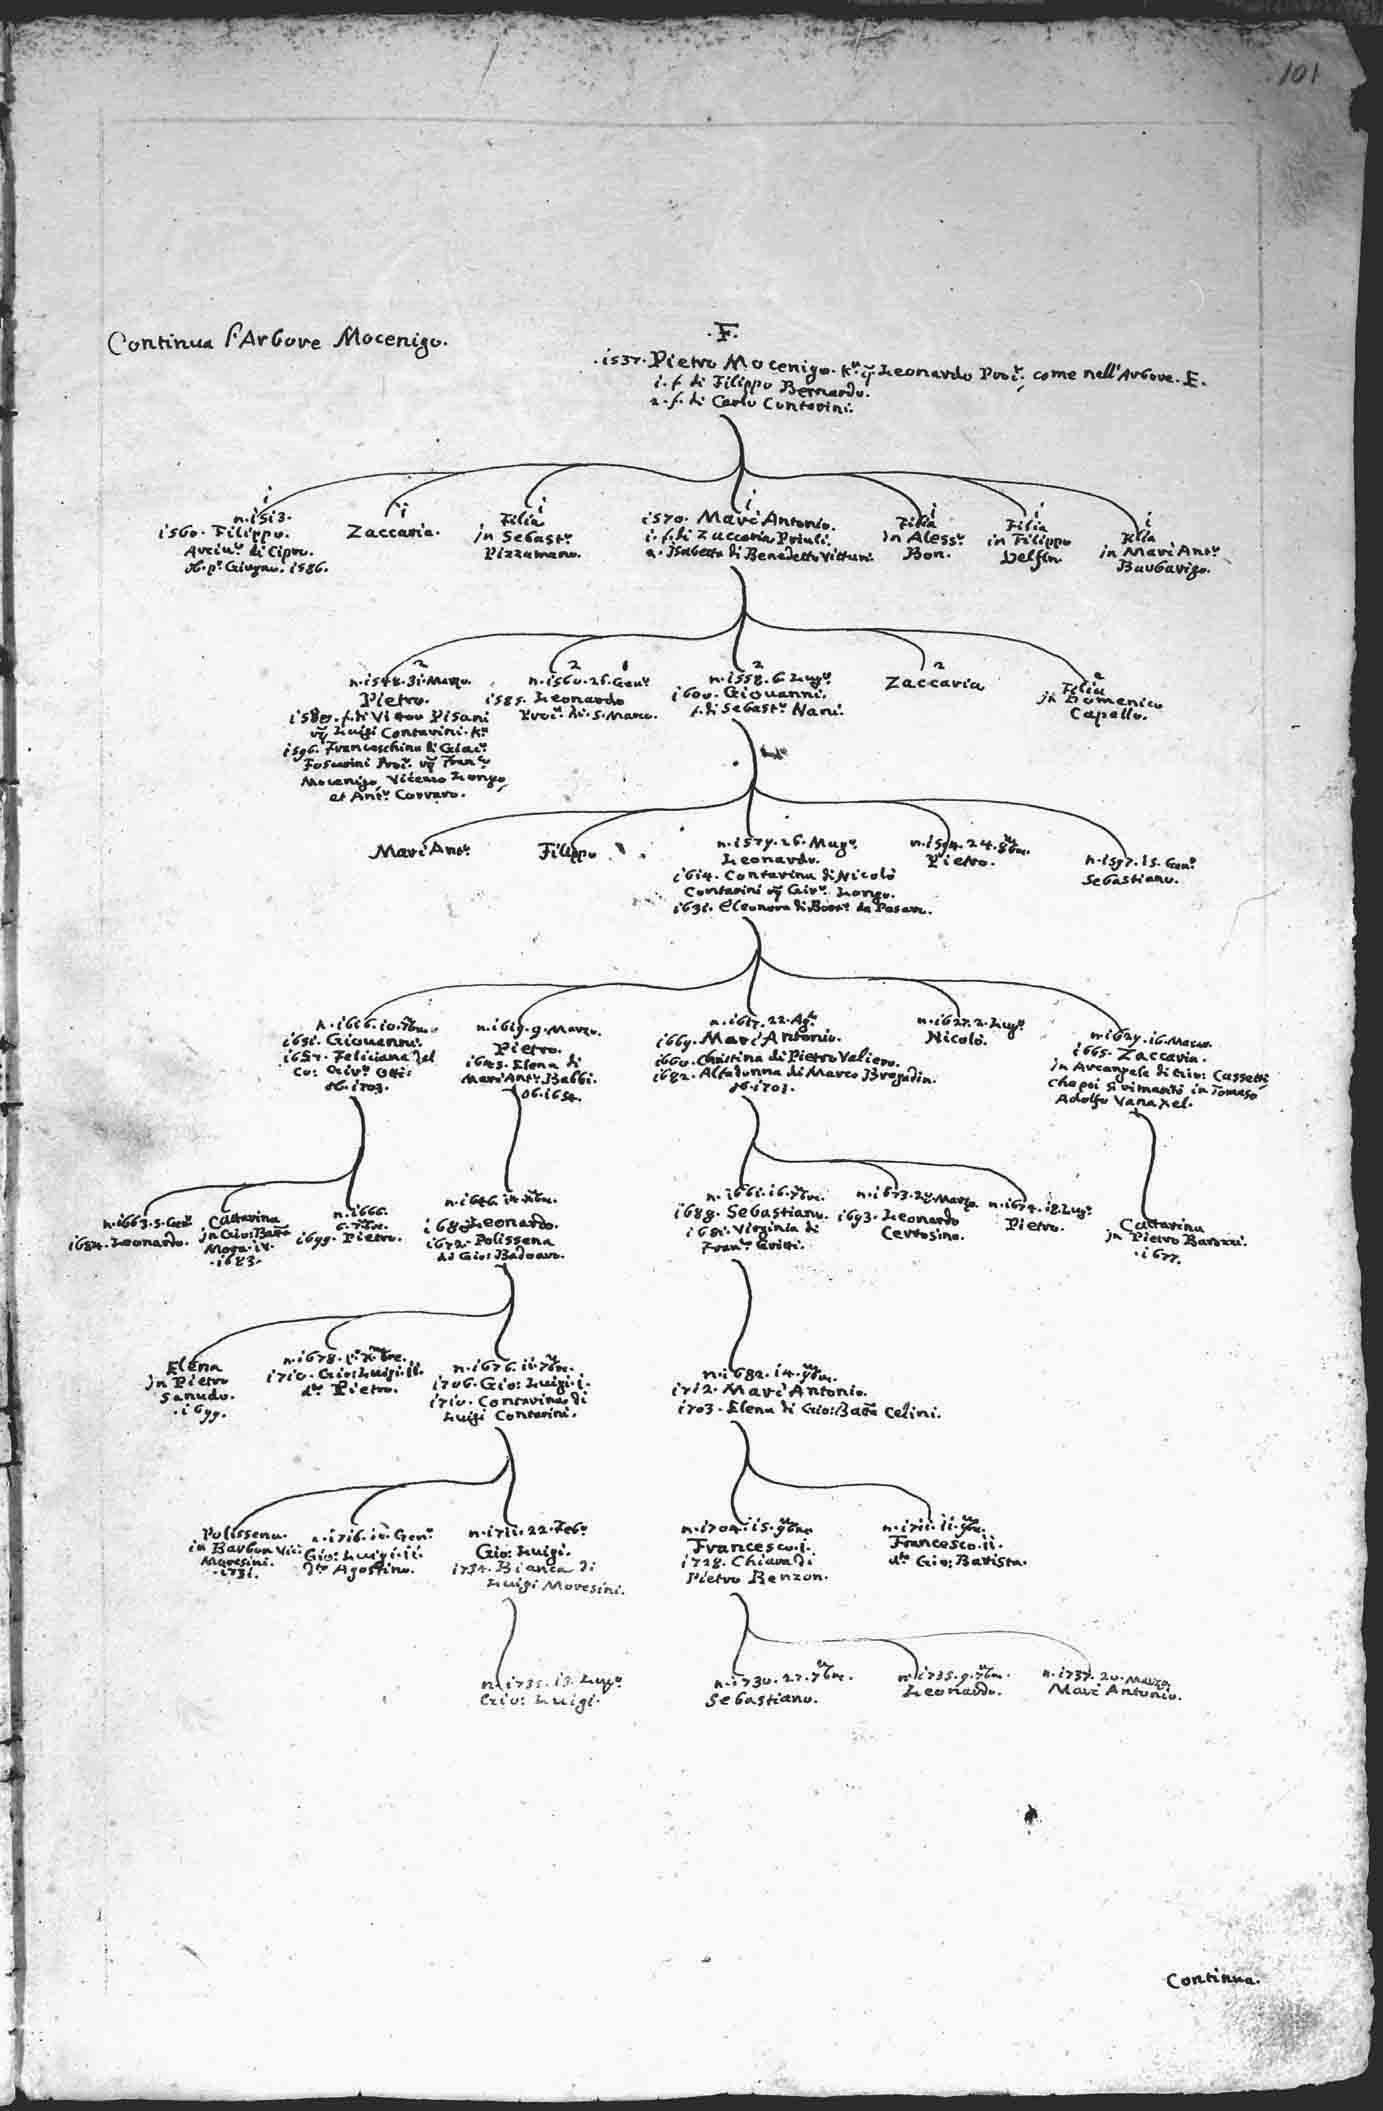 101
Continua l'Arbore Mocenigo.
.F.
.1537. Pietro Mocenigo. Kr. q. Leonardo Procr. come nell'Arbore. E.
1. f. di Filippo Bernardo.
2. f. di Carlo Contarini.
1
n. 1513.
1560. Filippo.
Arciuo. di Cipro.
ob. po. Giugno. 1586.
1
Zaccaria.
1
Filia
in Sebasto.
Pizzamano.
1
1570. Marc'Antonio.
1. f. di Zaccaria Priuli.
2. Isabetta di Benedetto Vitturi.
1
Filia
in Alesso.
Bon.
1
Filia
in Filippo
Delfin.
1
Filia
in Marc'Anto.
Barbarigo.
2
n. 1548. 31. Marzo.
Pietro.
1580. f. di Vitor Pisani
vo. Luigi Contarini. Kr.
1596. Franceschina di Giaco.
Foscarini Procr. vo. Franco.
Mocenigo, Vicenzo Longo,
et Anto. Corraro.
2
n. 1560. 26. Geno.
1585. Leonardo
Procr. di. S. Marco.
2
n. 1558. 6. Lugo.
1600. Giovanni.
f. di Sebasto. Nani.
2
Zaccaria
2
Filia
in Domenico
Capello.
Marc'Anto.
Filippo
n. 1579. 26. Mago.
Leonardo.
1614. Contarina di Nicolò
Contarini vo. Giro. Longo.
1631. Eleonora di Borto. da Pesaro.
n. 1594. 24. 8bre.
Pietro.
n. 1597. 15. Geno.
Sebastiano.
n. 1616. 10. 7bre.
1651. Giovanni.
1657. Feliciana del
Co: Giro. Otti.
ob. 1703.
n. 1619. 9. Marzo.
Pietro.
1645. Elena di
Marc'Anto. Balbi.
ob. 1654.
n. 1617. 22. Ago.
1669. Marc'Antonio.
1660. Christina di Pietro Valiero.
1682. Altadonna di Marco Bragadin.
ob. 1701.
n. 1627. 2. Lugo.
Nicolò.
n. 1629. 16. Marzo.
1665. Zaccaria.
in Arcangela di Gio: Cassetti
che poi si rimaritò in Tomaso
Adolfo Vanaxel.
n. 1663. 5. Geno.
1684. Leonardo.
Cattarina
in Gio: Batta
Moro. IV.
.1683.
n. 1666.
6. 7bre.
1699. Pietro.
n. 1646. 14. Xbre.
1680. Leonardo.
1672. Polissena
di Gio: Badoaro.
n. 1661. 16. 7bre.
1688. Sebastiano.
1681. Virginia di
Franco. Gritti.
n. 1673. 24. Marzo.
1693. Leonardo
Certosino.
n. 1674. 18. Lugo.
Pietro.
Cattarina
in Pietro Barozzi.
.1677.
Elena
in Pietro
Sanudo.
.1699.
1710. Gio: Luigi. II.
do. Pietro.
n. 1676. 11. 7bre.
1706. Gio: Luigi. I.
1710. Contarina di
Luigi Contarini.
n. 1682. 14. 9bre.
1712. Marc'Antonio.
1703. Elena di Gio: Batta Celini.
Polissena.
in Barbon Vic:
Moresini.
.1731.
Gio: Luigi. II.
do. Agostino.
n. 1711. 22. Febo.
Gio: Luigi.
1734. Bianca di
Luigi Moresini.
n. 1704. 15. 9bre.
Francesco. I.
1728. Chiara di
Pietro Benzon.
n. 1711. 11. 9bre.
Francesco. II.
do. Gio: Batista.
n. 1735. 13. Lugo.
Gio: Luigi.
n. 1730. 27. 7bre.
Sebastiano.
n. 1735. 9. 7bre.
Leonardo.
n. 1737. 20. Marzo.
Marc'Antonio.
Continua.